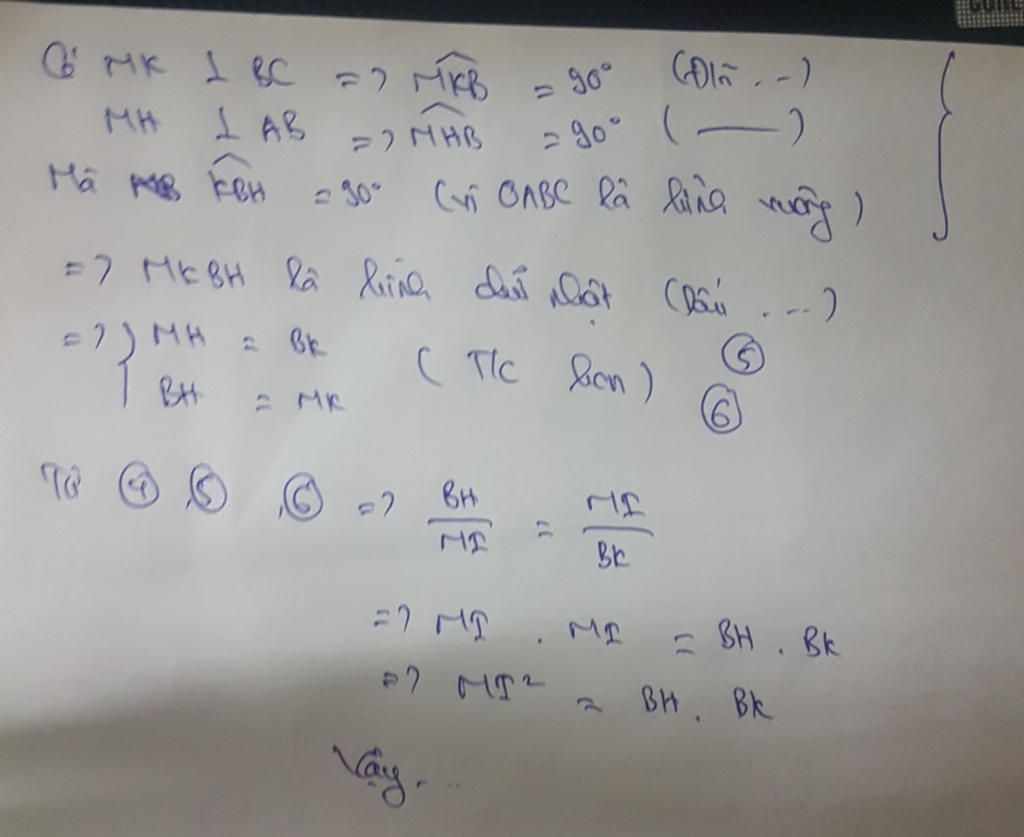 Có MK ⊥ BC => \widehat{MKB} = 90° (Đlí...)
MH ⊥ AB => \widehat{MHB} = 90° ( —— )
Mà \widehat{KBH} = 90° (vì OABC là hình vuông)
=> MKBH là hình chữ nhật (Dấu ...)
=> { MH = BK (T/c hcn) ⑤
BH = MK ⑥
Từ ④, ⑤, ⑥ => \frac{BH}{MI} = \frac{MI}{BK}
=> MI . MI = BH . BK
=> MI² = BH . BK
Vậy...